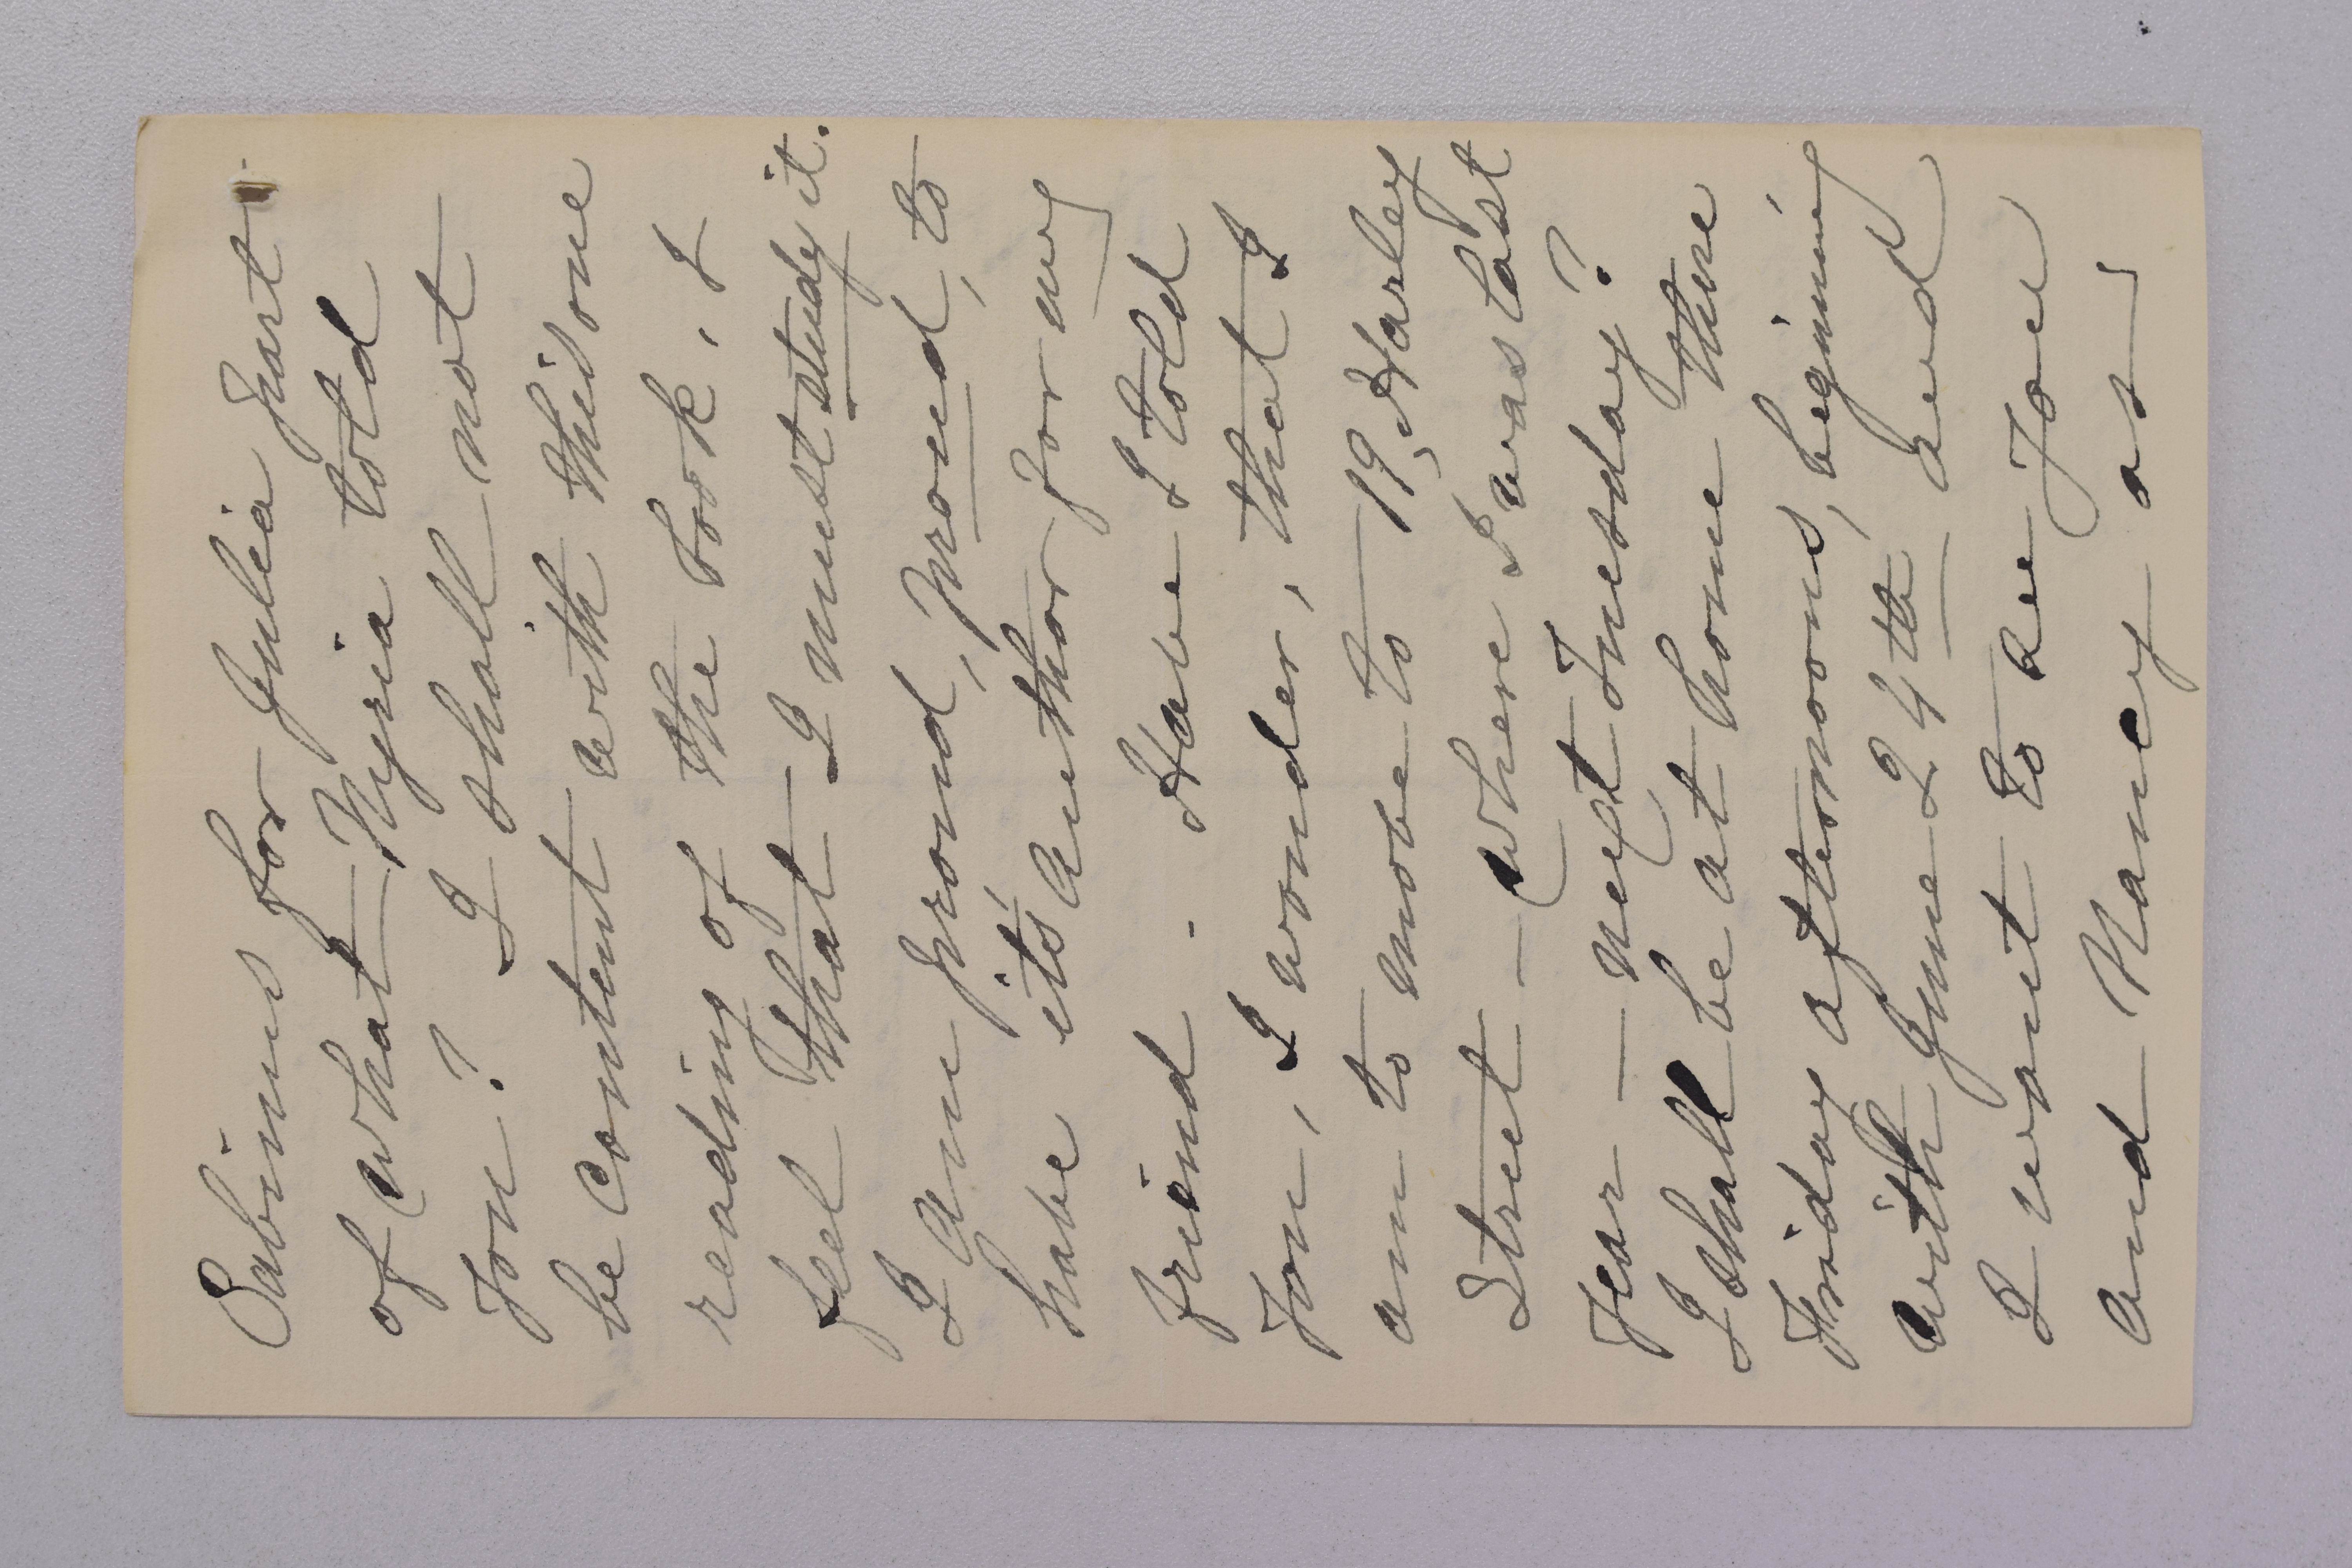 Sabinus for Julia part
of what Nyria told
you? I shall not
be content with this one
reading of the book, I
feel that I must study it.
I am proud, proud, to
have it's author for my
friend. Have I told
you, I wonder, that I
am to move to 19, Harley
Street – where I was last
year – next Tuesday?
I shall be at home there
Friday afternoons, begining
with June 24th, and
I want to see you
and Nancy as